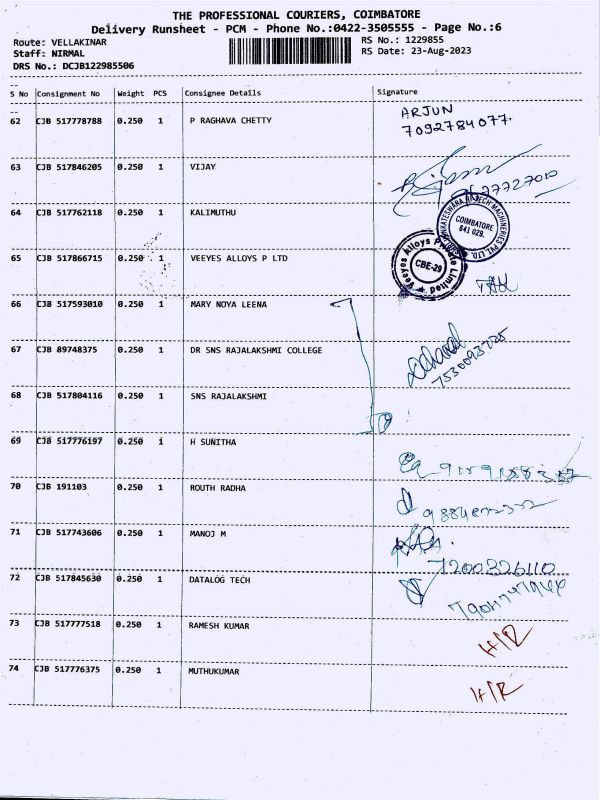 THE PROFESSIONAL COURIERS, COIMBATORE
Delivery Runsheet - PCM - Phone No.:0422-3505555 - Page No.:6
Route: VELLAKINAR RS No.: 1229855
Staff: NIRMAL RS Date: 23-Aug-2023
DRS No.: DCJB122985506
S No Consignment No Weight PCS Consignee Details Signature
62 CJB 517778788 0.250 1 P RAGHAVA CHETTY ARJUN
7092784077.
63 CJB 517846205 0.250 1 VIJAY
64 CJB 517762118 0.250 1 KALIMUTHU
COIMBATORE
641 029.
65 CJB 517866715 0.250 1 VEEYES ALLOYS P LTD
Veeyes Alloys Private Limited
CBE-29
66 CJB 517593010 0.250 1 MARY NOYA LEENA
67 CJB 89748375 0.250 1 DR SNS RAJALAKSHMI COLLEGE
68 CJB 517804116 0.250 1 SNS RAJALAKSHMI
69 CJB 517776197 0.250 1 H SUNITHA
70 CJB 191103 0.250 1 ROUTH RADHA
71 CJB 517743606 0.250 1 MANOJ M
7200326110
72 CJB 517845630 0.250 1 DATALOG TECH
73 CJB 517777518 0.250 1 RAMESH KUMAR H/R
74 CJB 517776375 0.250 1 MUTHUKUMAR H/R